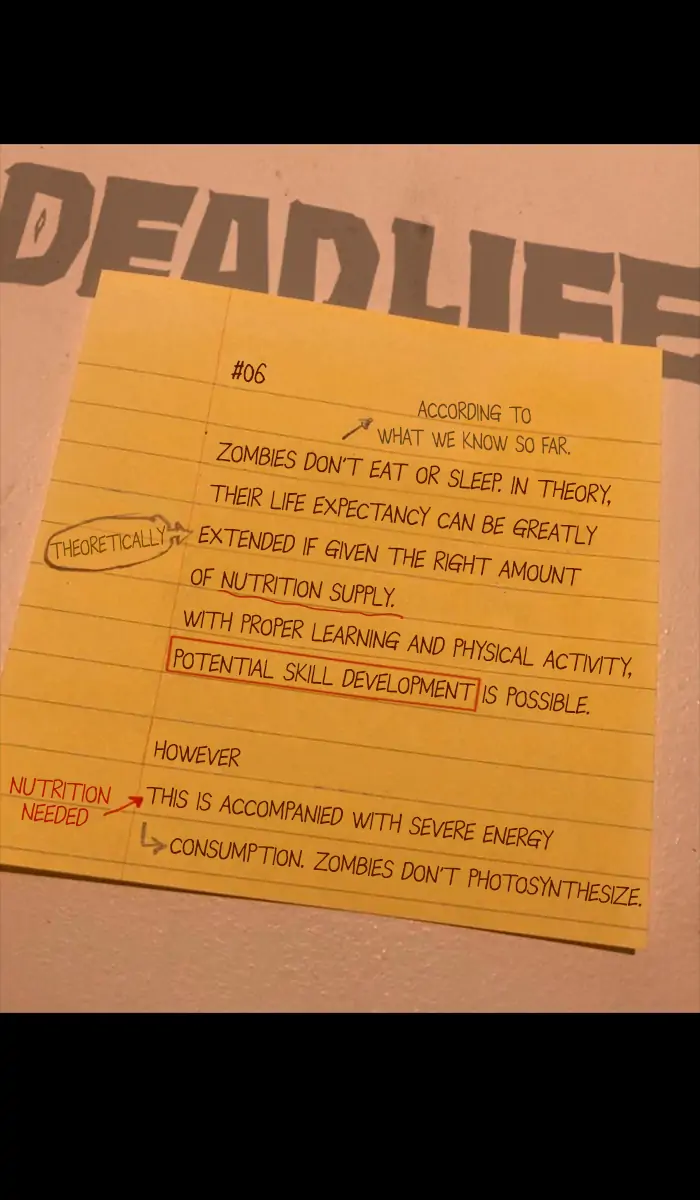 DEAD LIFE
#06
ACCORDING TO
WHAT WE KNOW SO FAR.
ZOMBIES DON'T EAT OR SLEEP. IN THEORY,
THEIR LIFE EXPECTANCY CAN BE GREATLY
THEORETICALLY
EXTENDED IF GIVEN THE RIGHT AMOUNT
OF NUTRITION SUPPLY.
WITH PROPER LEARNING AND PHYSICAL ACTIVITY,
POTENTIAL SKILL DEVELOPMENT IS POSSIBLE.
HOWEVER
NUTRITION
NEEDED
THIS IS ACCOMPANIED WITH SEVERE ENERGY
CONSUMPTION. ZOMBIES DON'T PHOTOSYNTHESIZE.